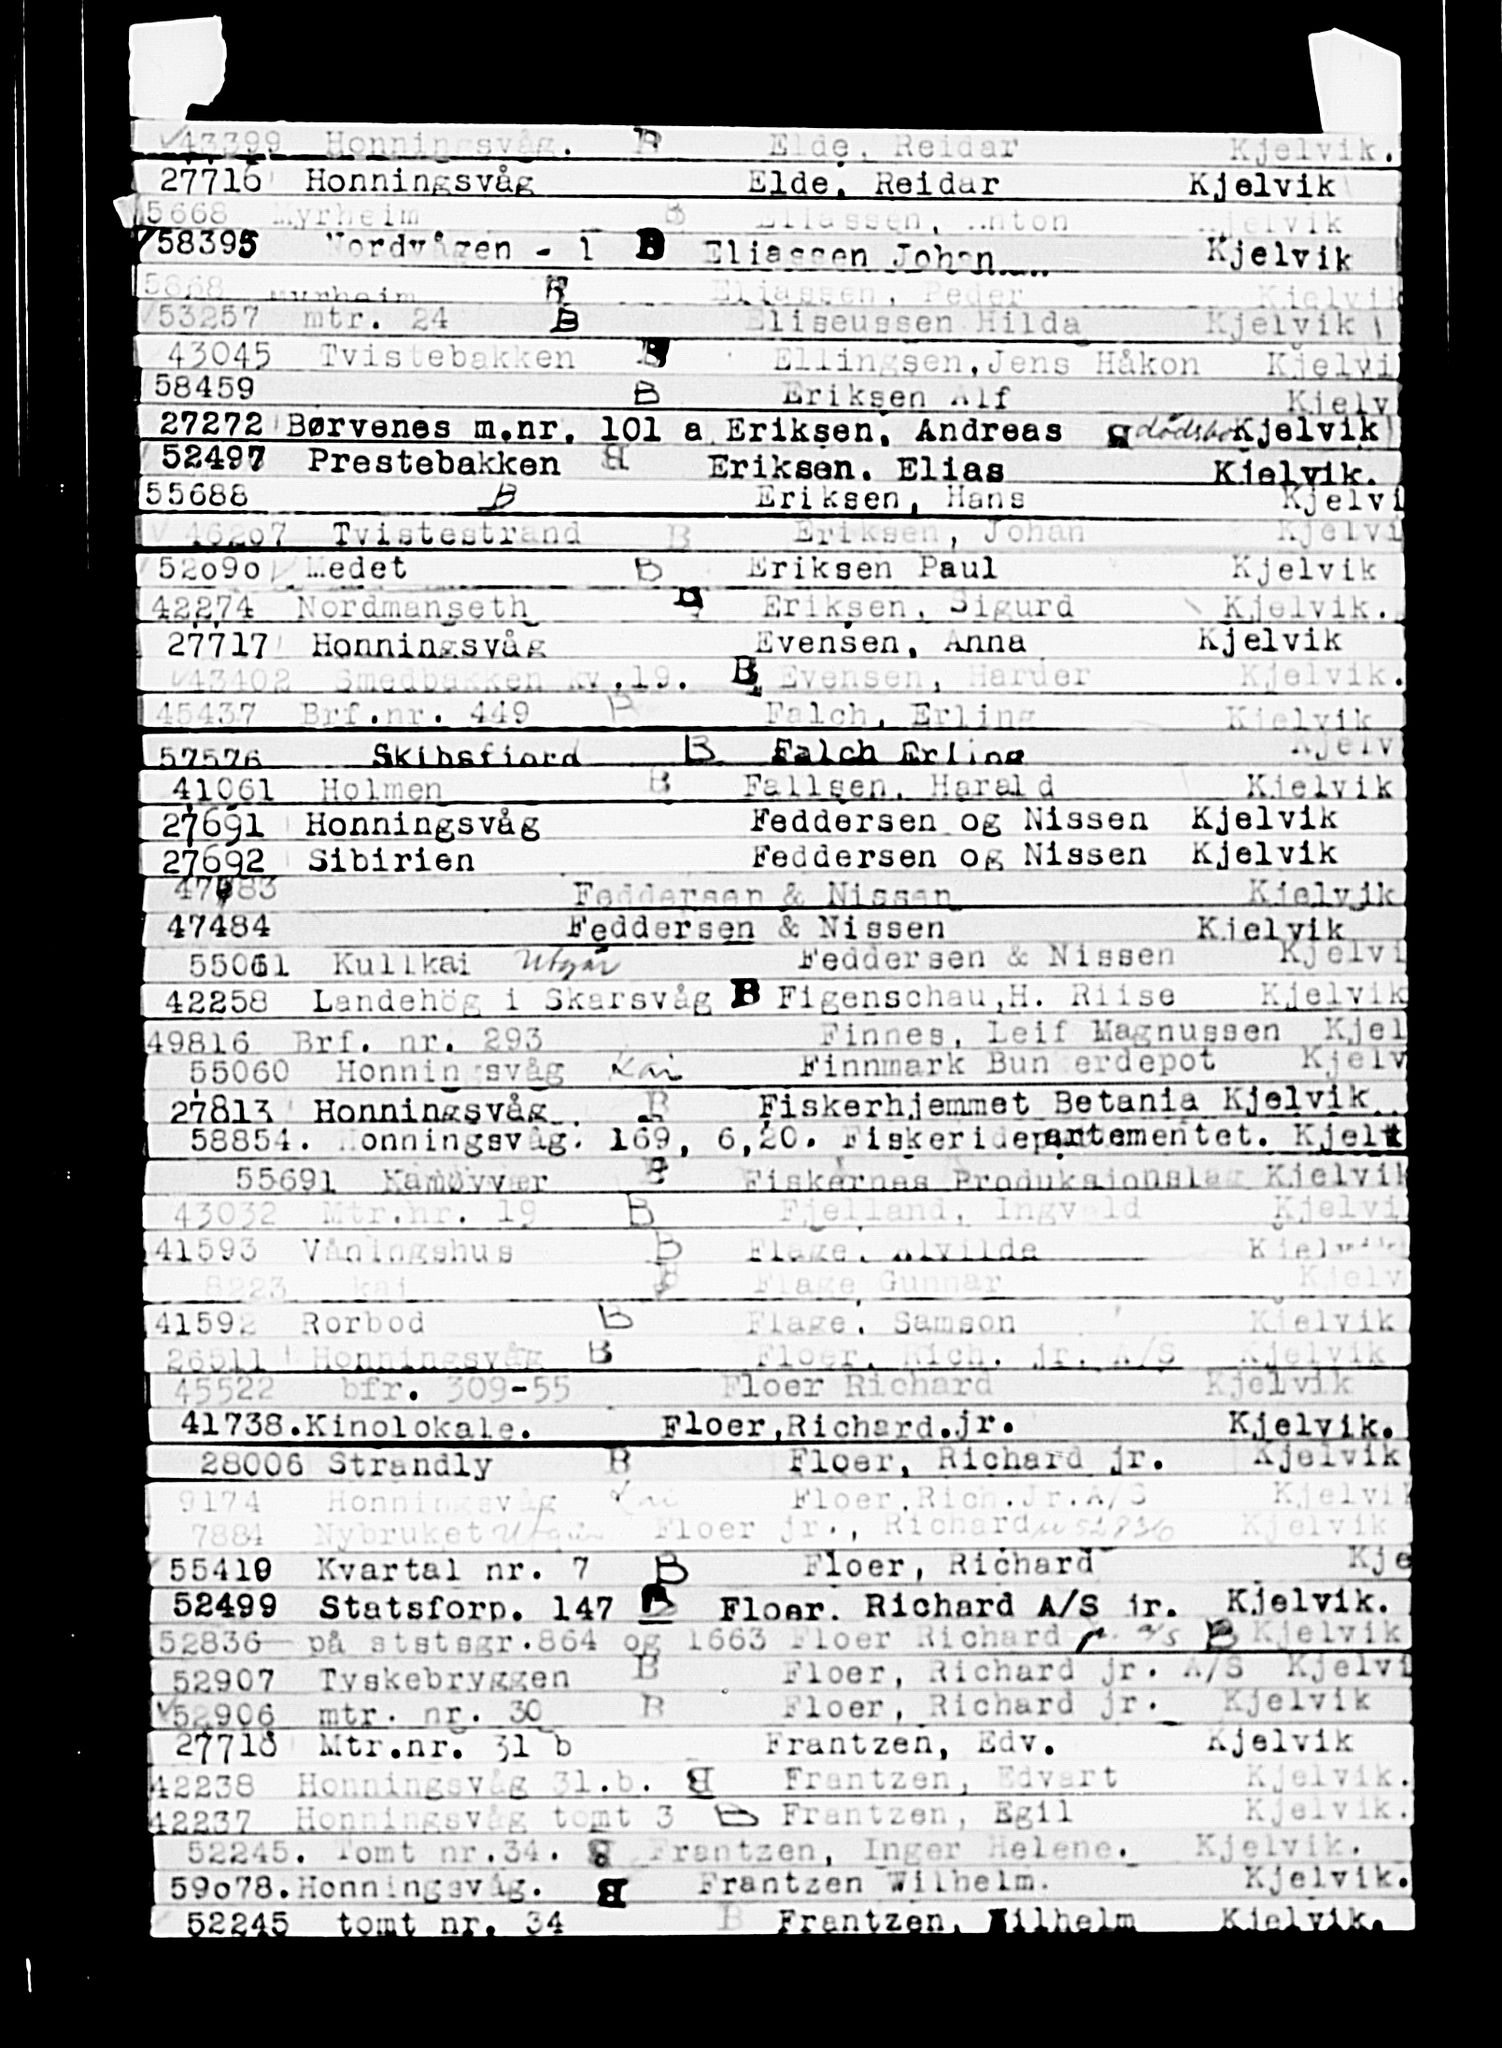 43399 Honningsvåg. B Elde, Reidar Kjelvik.
27716 Honningsvåg Elde, Reidar Kjelvik
5668 Myrheim B Eliassen, Anton Kjelvik
58395 Nordvågen - 1 B Eliassen Johan Kjelvik
5868 Myrheim B Eliassen, Peder Kjelvik
53257 mtr. 24 B Eliseussen Hilda Kjelvik
43045 Tvistebakken B Ellingsen, Jens Håkon Kjelvi
58459 B Eriksen Alf Kjelv
27272 Børvenes m.nr. 101 a Eriksen, Andreas dødsbo Kjelvik
52497 Prestebakken B Eriksen. Elias Kjelvik.
55688 B Eriksen, Hans Kjelvi
46207 Tvistestrand B Eriksen, Johan Kjelvi
52090 Medet B Eriksen Paul Kjelvik
42274 Nordmanseth B Eriksen, Sigurd Kjelvik.
27717 Honningsvåg Evensen, Anna Kjelvik
43402 Smedbakken kv.19. B Evensen, Harder Kjelvik.
45437 Brf.nr. 449 B Falch, Erling Kjelvik
57576 Skibsfjord B Falch Erling Kjelv
41061 Holmen B Fallsen, Harald Kjelvik
27691 Honningsvåg Feddersen og Nissen Kjelvik
27692 Sibirien Feddersen og Nissen Kjelvik
Feddersen & Nissen Kjelvik
47484 Feddersen & Nissen Kjelvik
55061 Kullkai Utgår Feddersen & Nissen Kjelvi
42258 Landehög i Skarsvåg B Figenschau,H. Riise Kjelvik
49816 Brf. nr. 293 Finnes, Leif Magnussen Kjel
55060 Honningsvåg Kai Finnmark Bunkerdepot Kjelv
27813 Honningsvåg B Fiskerhjemmet Betania Kjelvik
58854. Honningsvåg. 169, 6,20. Fiskeridepartementet. Kjel
55691 Kamøyvær B Fiskernes Produksjonslag Kjelvik
43032 Mtr.nr. 19 B Fjelland, Ingvald Kjelvi
41593 Våningshus B Flage, Alvilde Kjelvik
8223 kai B Flage Gunnar Kjelv
41592 Rorbod B Flage, Samson Kjelvik
26511 Honningsvåg B Floer, Rich. jr. A/S Kjelvik
45522 bfr. 309-55 Floer Richard Kjelvik
41738.Kinolokale. Floer,Richard.jr. Kjelvik.
28006 Strandly B Floer, Richard jr. Kjelvik
9174 Honningsvåg Kai Floer,Rich.Jr.A/S Kjelvik
7884 Nybruket Utgår Floer jr., Richard 52836 Kjelvik
55419 Kvartal nr. 7 B Floer, Richard Kje
52499 Statsforp. 147 B Floer, Richard A/S jr. Kjelvik.
52836 på ststsgr.864 og 1663 Floer Richard jr. A/S B Kjelvik
52907 Tyskebryggen B Floer, Richard jr. A/S Kjelvi
52906 mtr. nr. 30 B Floer, Richard jr. Kjelvik
27718 Mtr.nr. 31 b Frantzen, Edv. Kjelvik
42238 Honningsvåg 31.b. B Frantzen, Edvart Kjelvik.
42237 Honningsvåg tomt 3 B Frantzen, Egil Kjelvik.
52245. Tomt nr.34. B Frantzen, Inger Helene. Kjelvik.
59078.Honningsvåg. B Frantzen Wilhelm. Kjelvik.
52245 tomt nr. 34 B Frantzen, Wilhelm Kjelvik.